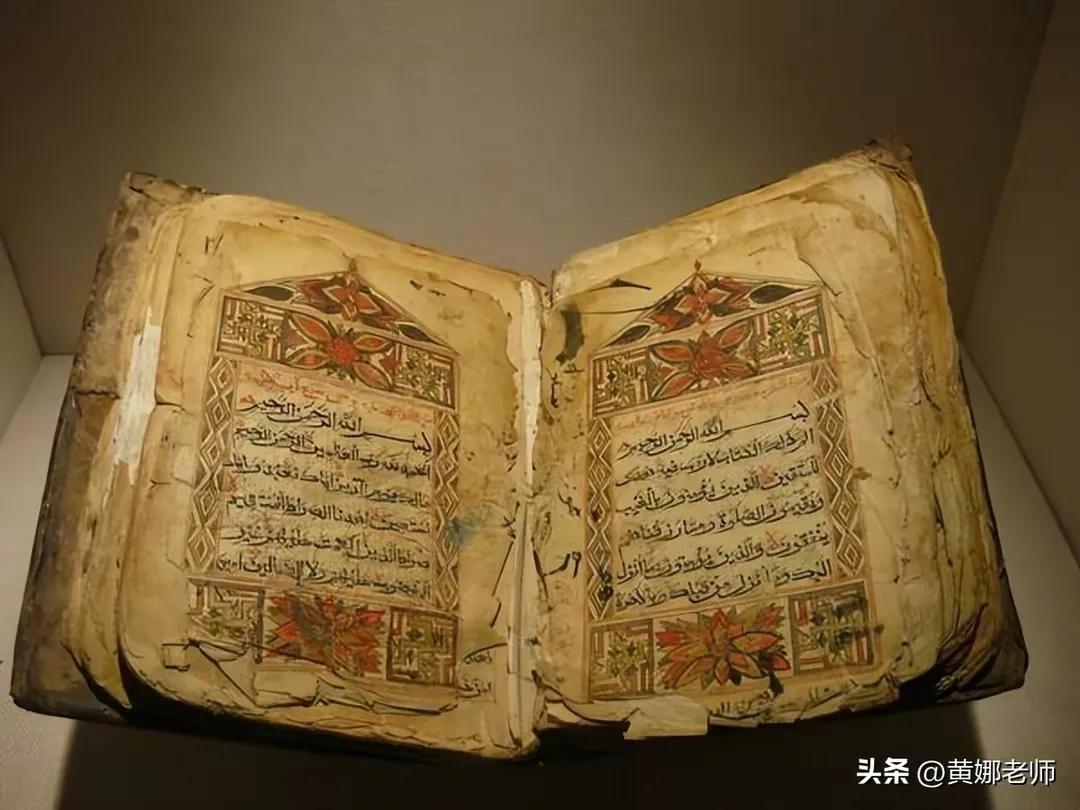 بسم الله الرحمن الرحيم
الحمد لله رب العالمين الرحمن الرحيم
مالك يوم الدين اياك نعبد واياك
نستعين اهدنا الصراط المستقيم
صراط الذين انعمت عليهم غير
المغضوب عليهم ولا الضالين امين
بسم الله الرحمن الرحيم
الم ذلك الكتاب لا ريب فيه هدى
للمتقين الذين يؤمنون بالغيب
ويقيمون الصلوة ومما رزقناهم
ينفقون والذين يؤمنون بما انزل
اليك وما انزل من قبلك وبالاخرة
头条 @黄娜老师